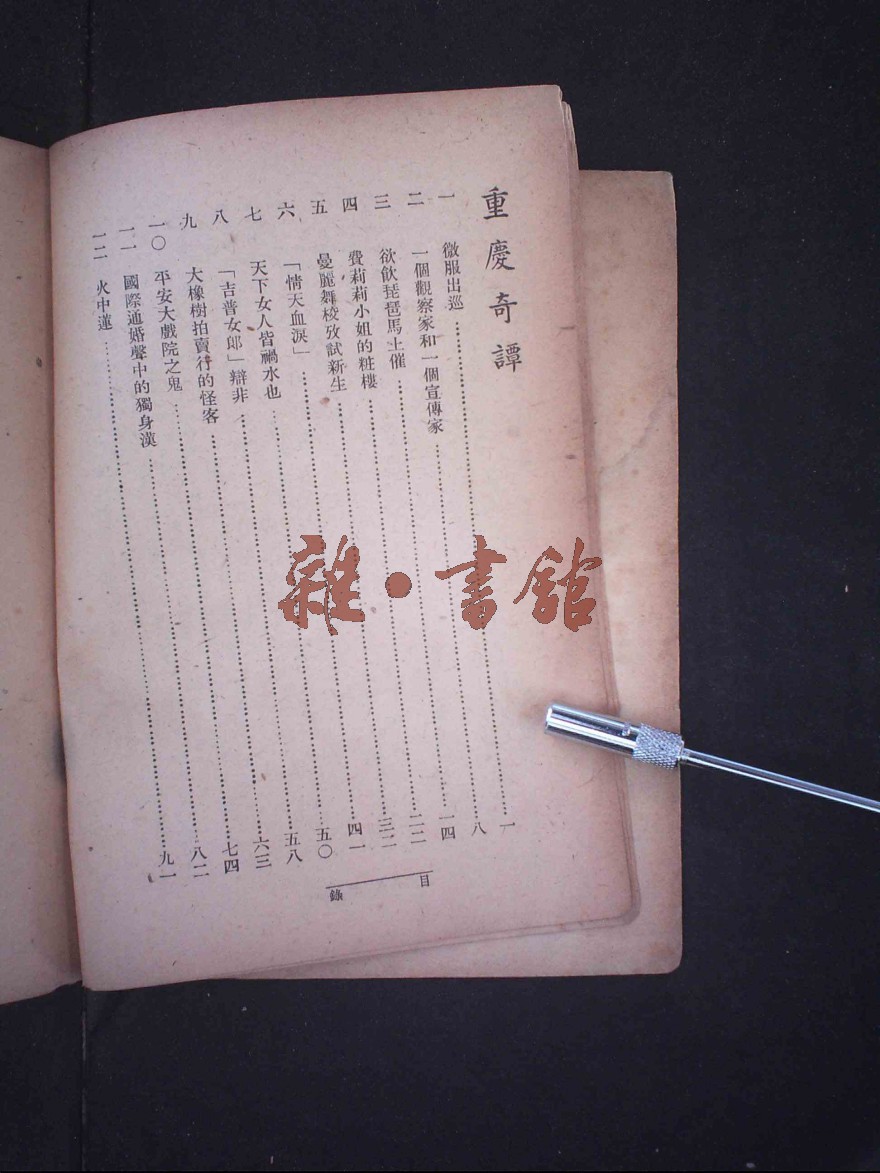 重慶奇譚
一 微服出巡……一
二 一個觀察家和一個宣傳家……八
三 欲飲琵琶馬上催……一四
四 費莉莉小姐的粧樓……二二
五 曼麗舞校攷試新生……三二
六 「情天血淚」……四一
七 天下女人皆禍水也……五〇
八 「吉普女郎」辯非……五八
九 大橡樹拍賣行的怪客……六三
一〇 平安大戲院之鬼……七四
一一 國際通婚聲中的獨身漢……八二
一二 火中蓮……九一
目錄
雜·書館